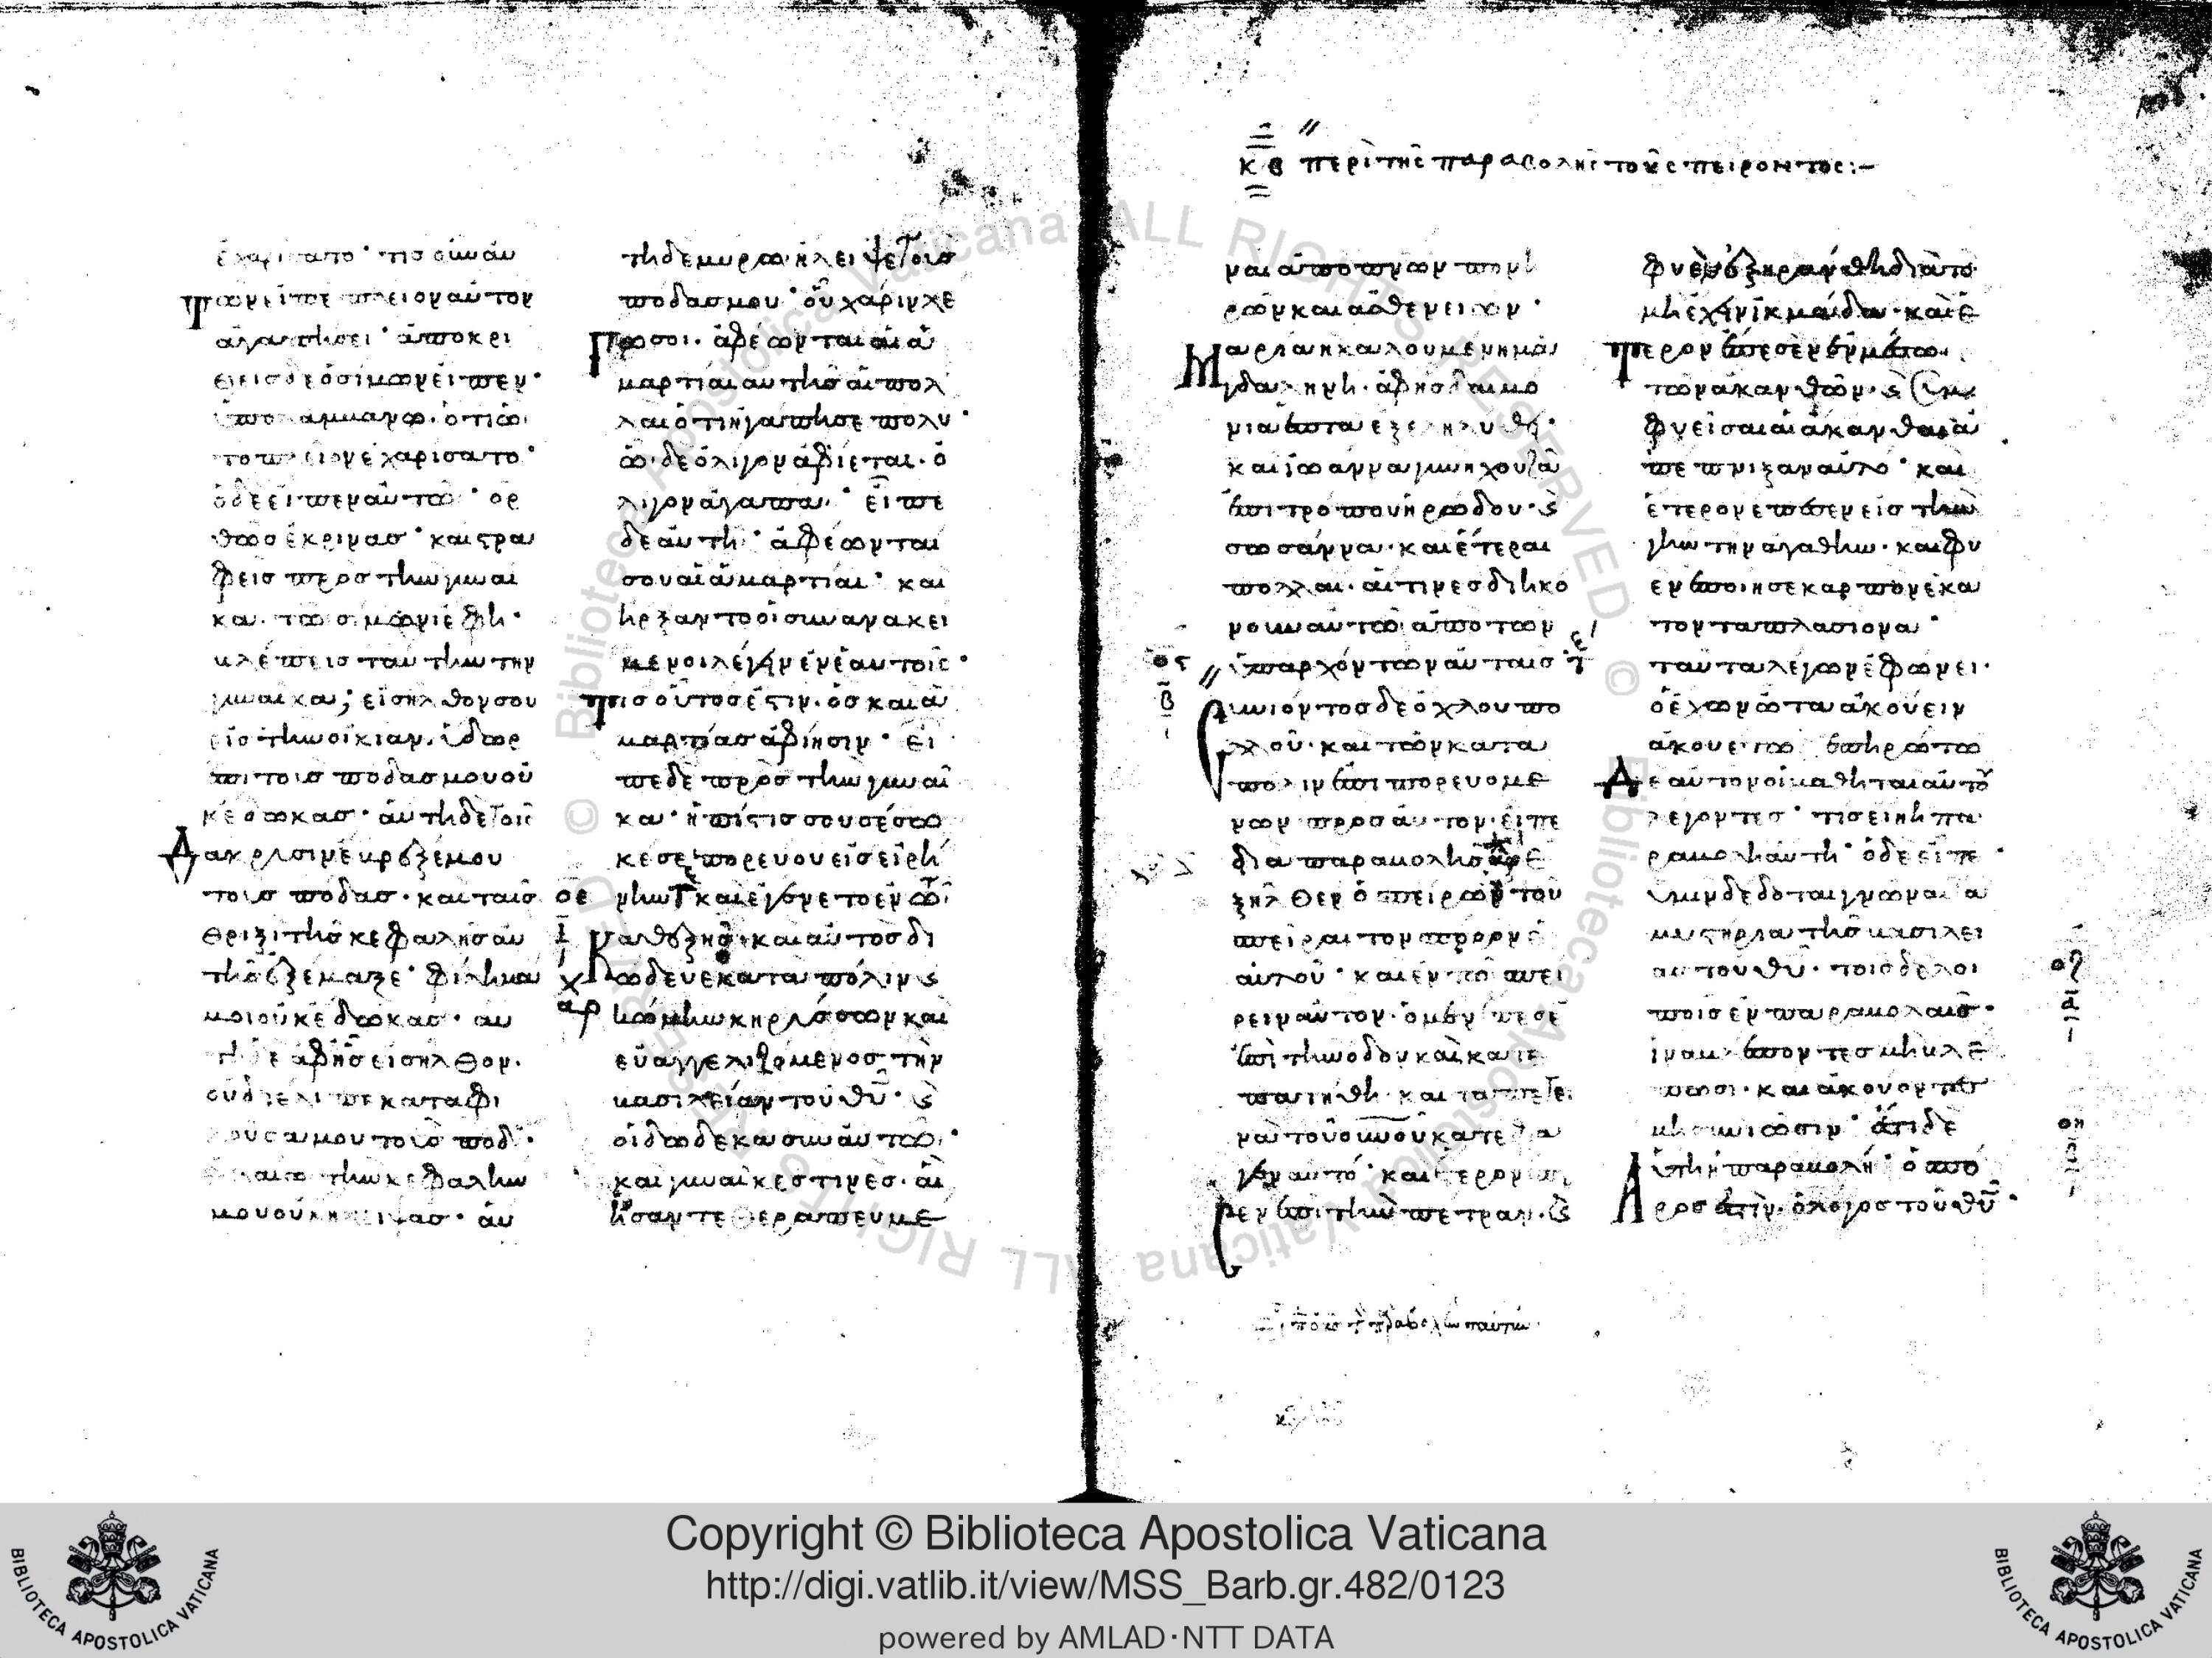 ἐχαρίσατο· τίσ οὖν αὐ
τῶν εἰπὲ πλεῖον αὐτὸν
ἀγαπήσει· ἀποκρι
θεὶσ δὲ ὁ σίμων εἶπεν·
ὑπολαμβάνω. ὅτι ὧ
τὸ πλεῖον ἐχαρίσατο·
ὁ δὲ εἶπεν αὐτῶ· ὀρ
θῶσ ἔκρινασ· καὶ στρα
φεὶσ πρὸσ τὴν γυναῖ
κα. τῶ σίμωνι ἔφη·
βλέπεισ ταύτην τὴν
γυναῖκα; εἰσῆλθόν σου
εἰσ τὴν οἰκίαν. ὕδωρ
ἐπὶ τοὺσ πόδασ μου οὐ
κ ἔδωκασ· αὐτὴ δὲ τοῖσ
δάκρυσιν ἔβρεξέ μου
τοὺσ πόδασ. καὶ ταῖσ
θριξὶ τῆσ κεφαλῆσ αὐ
τῆσ ἐξέμαξε· φίλημά
μοι οὐκ ἔδωκασ. αὐ
τὴ δὲ ἀφ' ἧσ εἰσῆλθον.
οὐ διέλιπε καταφι
λοῦσα μου τοὺσ πόδ·
ἐλαίω τὴν κεφαλήν
μου οὐκ ἤλειψασ· αὐ
τὴ δὲ μύρω ἤλειψε τοὺσ
πόδασ μου· οὗ χάριν λέ
γω σοι. ἀφέωνται αἱ ἁ
μαρτίαι αὐτῆσ αἱ πολ
λαὶ ὅτι ἠγάπησε πολύ·
ὧ δὲ ὀλίγον ἀφίεται. ὀ
λίγον ἀγαπᾶ· εἶπε
δὲ αὐτῆ· ἀφέωνται
σου αἱ ἁμαρτίαι· καὶ
ἤρξαντο οἱ συνανακεί
μενοι λέγειν ἐν ἑαυτοῖσ·
τίσ οὗτοσ ἐστιν. ὃσ καὶ ἁ
μαρτίασ ἀφίησιν· εἶ
πε δὲ πρὸσ τὴν γυναῖ
κα· ἡ πίστισ σου σέσω
κέ σε πορεύου εἰσ εἰρή
οε νην καὶ ἐγένετο ἐν τῶ
ι καθεξῆσ. καὶ αὐτὸσ δι
χ ώδευε κατὰ πόλιν κ
αρ κώμην κηρύσσων καὶ
εὐαγγελιζόμενοσ τὴν
βασιλείαν τοῦ θυ· κ
οἱ δώδεκα σὺν αὐτῶ·
καὶ γυναῖκεσ τινέσ. αἳ
ἦσαν τεθεραπευμέ
κβ περὶ τῆς παραβολῆς τοῦ σπείροντος:–
ναι ἀπὸ πν̅ων πονη
ρῶν καὶ ἀσθενειῶν·
Μαρία ἡ καλουμένη μα
γδαληνή. ἀφ' ἧσ δαιμό
νια ἑπτὰ ἐξεληλύθει·
καὶ ἰωάννα γυνὴ χουζᾶ
ἐπιτρόπου ἡρώδου· κ
σωσάννα. καὶ ἕτεραι
πολλαί. αἵτινεσ διηκό
νουν αὐτῶ ἀπὸ τῶν
οϛ ὑπαρχόντων αὐταῖσ
β Συνιόντοσ δὲ ὄχλου πο
λλοῦ. καὶ τῶν κατὰ
πόλιν ἐπιπορευομέ
νων πρὸσ αὐτὸν. εἶπε
διὰ παραβολῆσ
ξῆλθεν ὁ σπείρων τοῦ
σπεῖραι τὸν σπόρον
αὐτοῦ· καὶ ἐν τῶ σπεί
ρειν αὐτὸν. ὃ μὲν ἔπεσε
ἐπὶ τὴν ὁδόν καὶ κατε
πατήθη. καὶ τὰ πετει
νὰ τοῦ οὐνοῦ κατέφα
γεν αὐτό· καὶ ἕτερον ἔπε
σεν ἐπὶ τὴν πέτραν. κ
φυὲν ἐξηράνθη διὰ τὸ
μὴ ἔχειν ἰκμάδα. καὶ ἕ
τερον ἔπεσεν ἐν μέσω
τῶν ἀκανθῶν. κ συμ
φυεῖσαι αἱ ἄκανθαι ἀ
πέπνιξαν αὐτό· καὶ
ἕτερον ἔπεσεν εἰσ τὴν
γῆν τὴν ἀγαθήν. καὶ φυ
ὲν ἐποίησε καρπὸν ἑκα
τονταπλασίονα·
ταῦτα λέγων ἐφώνει.
ὁ ἔχων ὦτα ἀκούειν
ἀκουέτω ἐπηρώτω
Δε αὐτὸν οἱ μαθηταὶ αὐτοῦ
λέγοντεσ· τίσ εἴη ἡ πα
ραβολὴ αὐτη· ὁ δὲ εἶπε·
ὑμῖν δέδοται γνῶναι τὰ
μυστήρια τῆσ βασιλεί
ασ τοῦ θυ· τοῖσ δὲ λοι
ποῖσ ἐν παραβολαῖσ·
ἵνα βλέποντεσ μὴ βλέ
πωσι. καὶ ἀκούοντεσ
μὴ συνιῶσιν· ἔστι δὲ
αὕτη ἡ παραβολή· ὁ σπό
ροσ ἐστὶν. ὁ λόγοσ τοῦ θυ·
οη
Copyright © Biblioteca Apostolica Vaticana
http://digi.vatlib.it/view/MSS_Barb.gr.482/0123
powered by AMLAD·NTT DATA
BIBLIOTECA APOSTOLICA VATICANA
BIBLIOTECA APOSTOLICA VATICANA